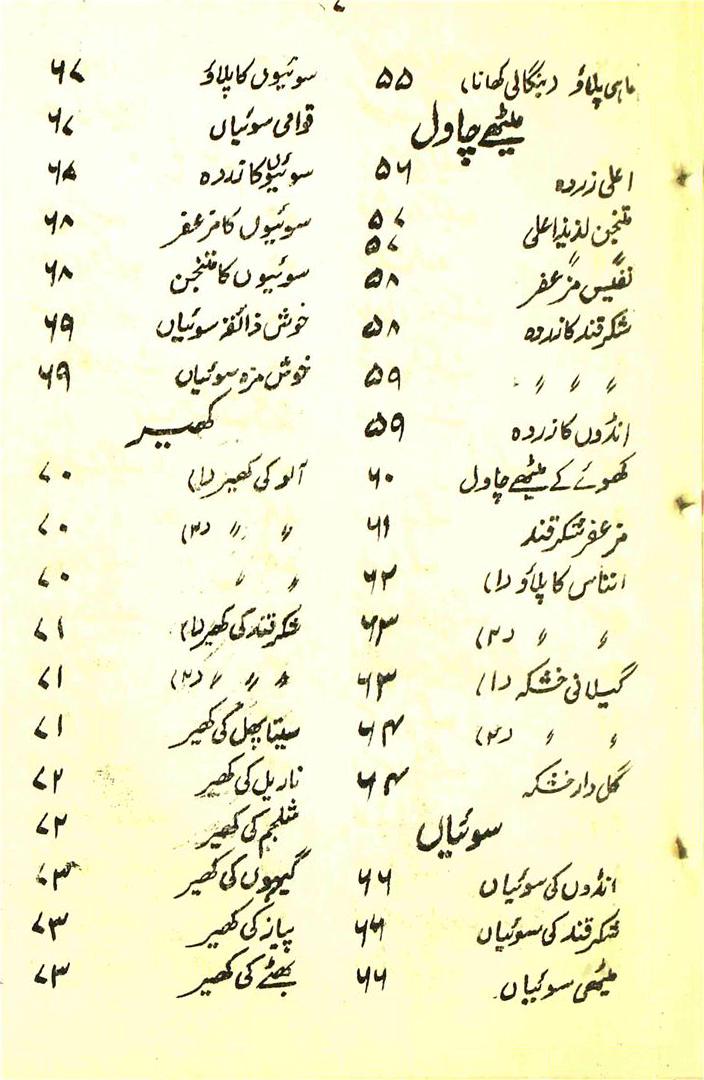 ماہی پلاؤ (بنگالی کھانا) ۵۵
میٹھے چاول
اعلیٰ زردہ ۵۶
متنجن لذیذ اعلی ۵۷
۵۷
نفیس مزعفر ۵۸
شکر قند کا زردہ ۵۸
〃 〃 〃 ۵۹
انڈوں کا زردہ ۵۹
کھوئے کے میٹھے چاول ۶۰
مزعفر شکر قند ۶۱
انناس کا پلاؤ (۱) ۶۲
〃 〃 〃 (۲) ۶۳
گیلانی خشکہ (۱) ۶۳
〃 〃 (۲) ۶۴
گل دار خشکہ ۶۴
سوئیاں
انڈوں کی سوئیاں ۶۶
شکر قند کی سوئیاں ۶۶
میٹھی سوئیاں ۶۶
سوئیوں کا پلاؤ ۶۷
قوامی سوئیاں ۶۷
سوئیوں کا زردہ ۶۸
سوئیوں کا مزعفر ۶۸
سوئیوں کا متنجن ۶۸
خوش ذائقہ سوئیاں ۶۹
خوش مزہ سوئیاں ۶۹
کھیر
آلو کی کھیر (۱) ۷۰
〃 〃 〃 (۲) ۷۰
〃 〃 ۷۰
شکر قند کی کھیر (۱) ۷۱
〃 〃 〃 (۲) ۷۱
سیتا پھل کی کھیر ۷۱
ناریل کی کھیر ۷۲
شلجم کی کھیر ۷۲
گیہوں کی کھیر ۷۳
پیاز کی کھیر ۷۳
بھٹے کی کھیر ۷۳